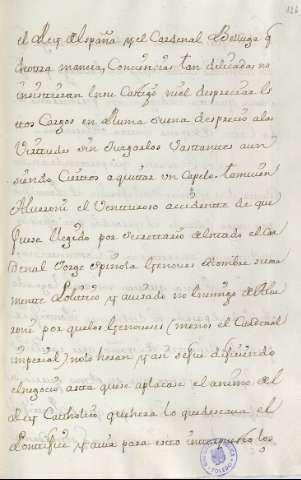 126
el Rey de España y el Cardenal Belluga q
de otra manera, Conciencias tan delicadas no
insistieran en su Castigo ni el despreciar los
otros Cargos en Roma suena desprecio a las
Virtudes sin Juzgarlos bastantes aun
siendo Ciertos a quitar un Capelo tamvien
Alveroni el Venturoso accidente de que
fuese llegido por Secretario de estado el Car
denal Jorge Spinola Genoves hombre suma
mente Politico y avisado no Enemigo de Alve
roni por que los Genoveses (menos el Cardenal
imperial) no lo heran y an se fue difiriendo
el negocio asta que se aplacase el animo del
Rey Catholico, que hera lo que deseava el
Pontifice y avia para esto interpuesto los
TOLEDO